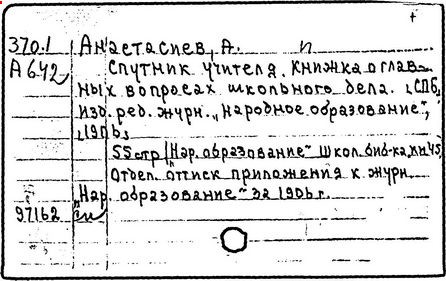 370.1 Анастасиев, А. п
А642 Спутник учителя. Книжка о глав-
ных вопросах школьного дела. [СПб,
изд. ред. журн. „Народное образование",
[1906]
55 стр („Нар. образование" Школ. биб-ка, кн. 45)
Отдел. оттиск приложения к журн.
„Нар. образование" за 1906 г.
97162